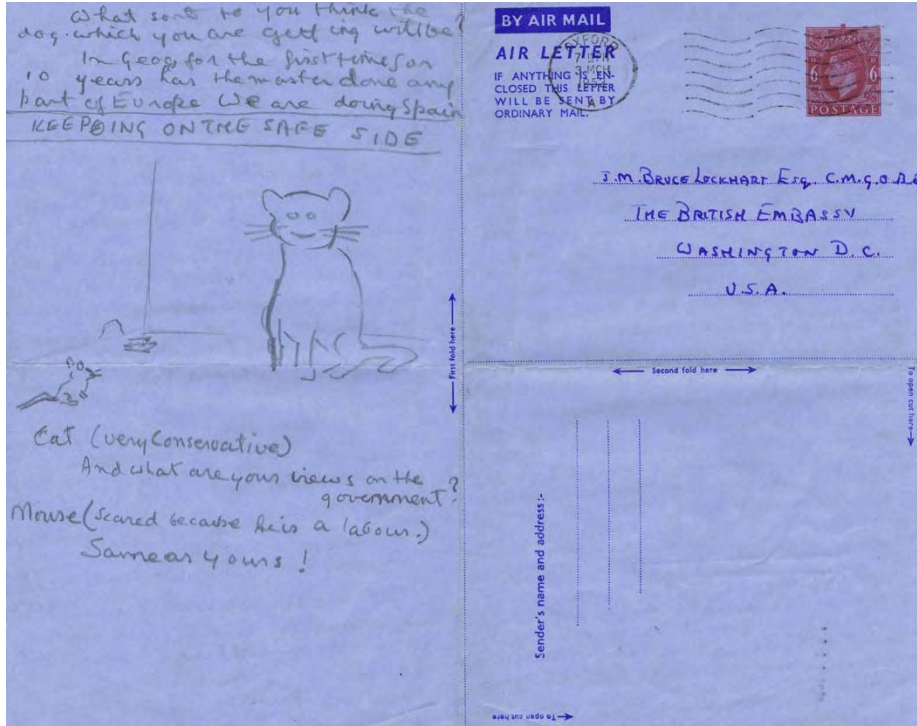 What sort to you think the
dog which you are getting will be?
In Geog for the first time for
10 years has the master done any
part of Europe We are doing Spain
KEEPING ON THE SAFE SIDE
Cat (very Conservative)
And what are your views on the
government?
Mouse (scared because he is a labour.)
Same as yours!
BY AIR MAIL
AIR LETTER
IF ANYTHING IS EN-
CLOSED THIS LETTER
WILL BE SENT BY
ORDINARY MAIL.
OXFORD
3 MCH
A
6 6
POSTAGE
J.M. BRUCE LOCKHART Esq. C.M.G.
THE BRITISH EMBASSY
WASHINGTON D.C.
U.S.A.
First fold here
Second fold here
To open cut here
Sender's name and address :-
To open cut here